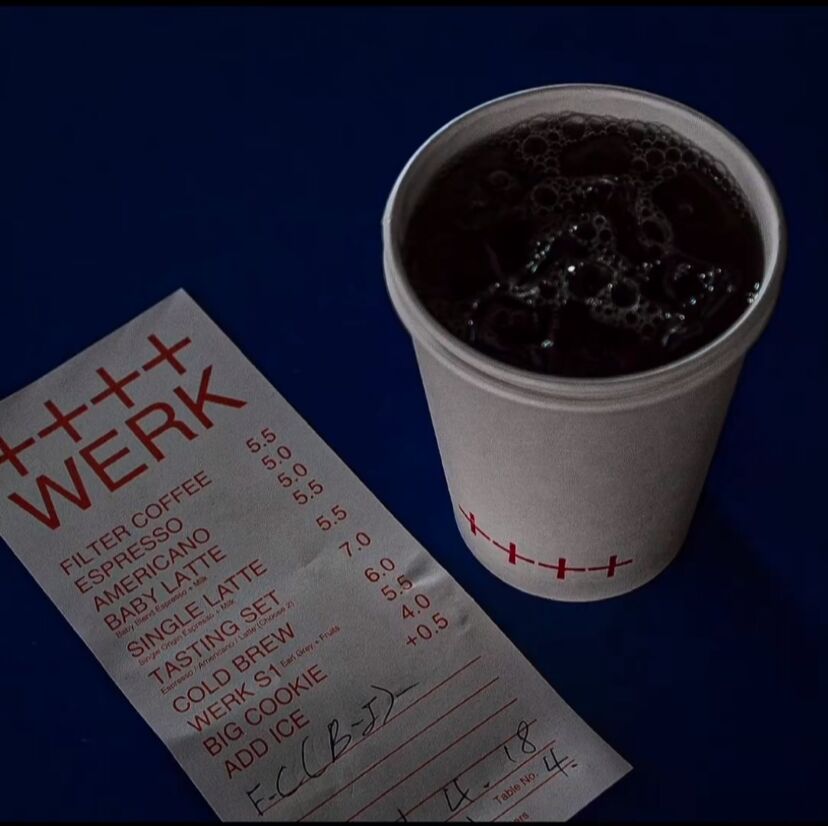 ++++
WERK
FILTER COFFEE 5.5
ESPRESSO 5.0
AMERICANO 5.0
BABY LATTE 5.5
Baby Blend Espresso + Milk
SINGLE LATTE 5.5
Single Origin Espresso + Milk
TASTING SET 7.0
Espresso / Americano / Latte (Choose 2)
COLD BREW 6.0
WERK S1 Earl Grey + Fruits 5.5
BIG COOKIE 4.0
ADD ICE +0.5
F-C (B-J)-
4.18
Table No. 4.
++++